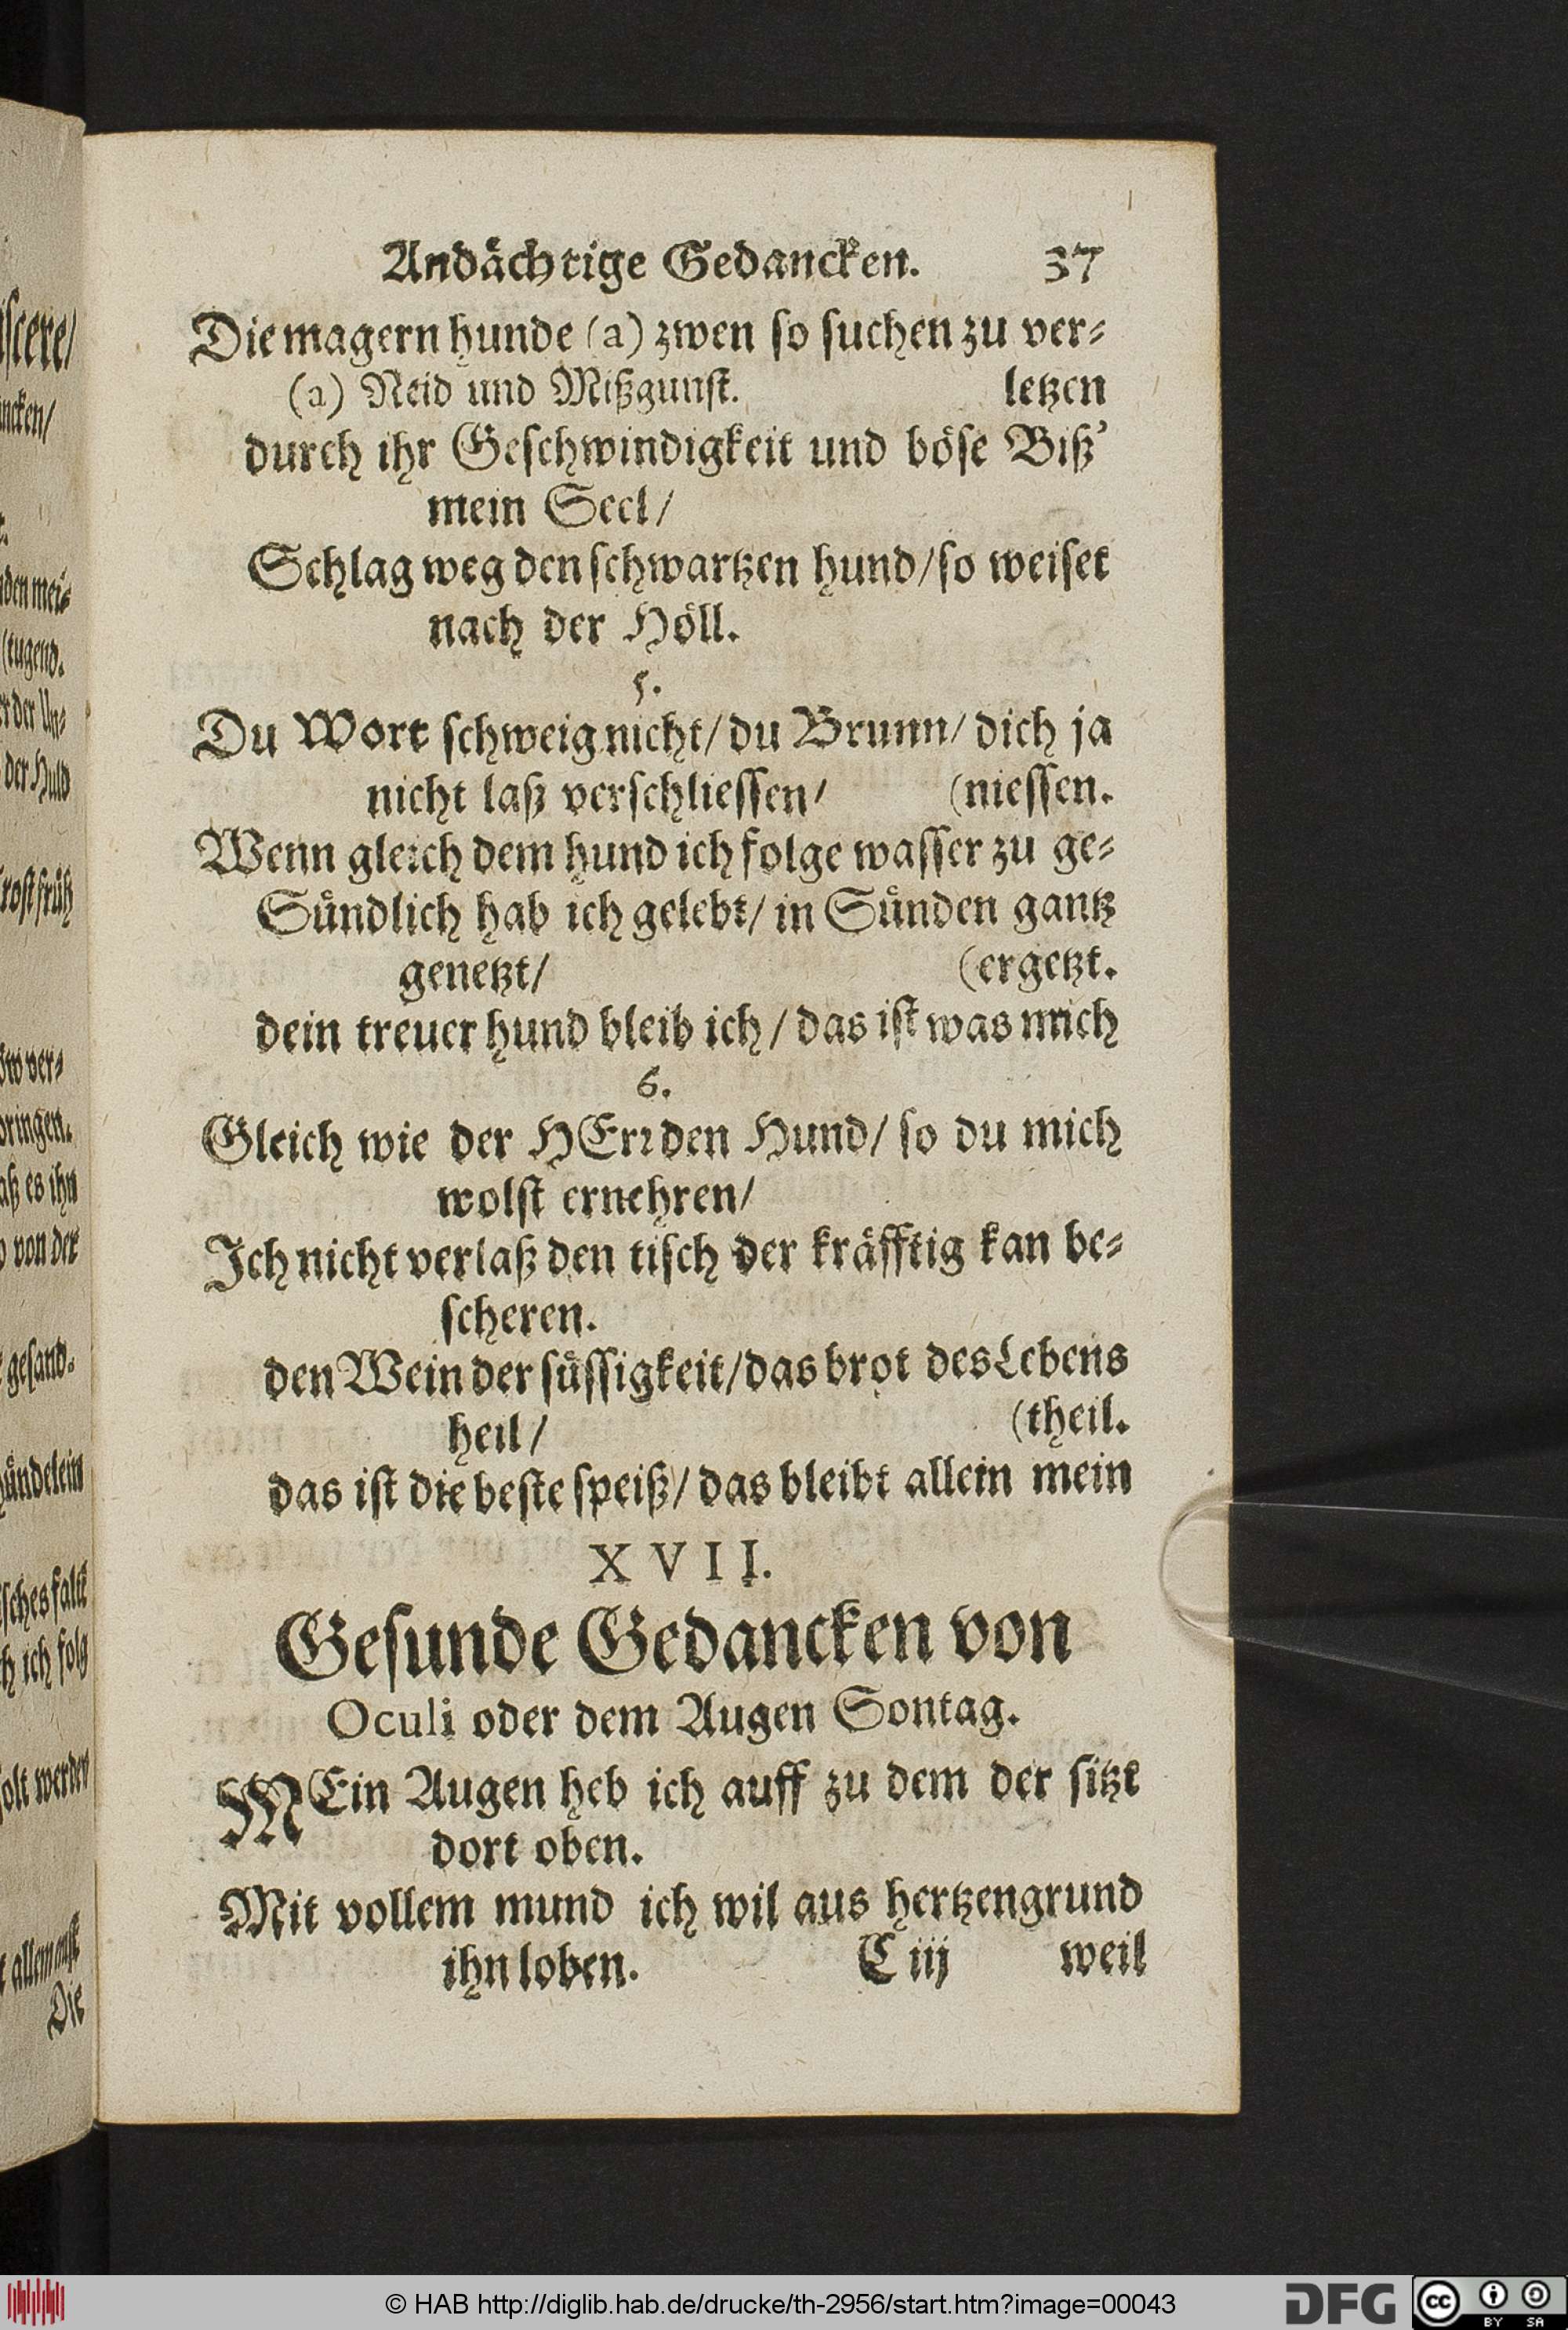 Andächtige Gedancken. 37
Die magern hunde (a) zwen so suchen zu ver-
(a) Neid und Mißgunst. letzen
durch ihr Geschwindigkeit und böse Biß'
mein Seel/
Schlag weg den schwartzen hund/so weiset
nach der Höll.
5.
Du Wort schweig nicht/du Brunn/dich ja
nicht laß verschliessen/ (niessen.
Wenn gleich dem hund ich folge wasser zu ge-
Sündlich hab ich gelebt/in Sünden gantz
genetzt/ (ergetzt.
dein treuer hund bleib ich/das ist was mich
6.
Gleich wie der HErr den Hund/so du mich
wolst ernehren/
Ich nicht verlaß den tisch der kräfftig kan be-
scheren.
den Wein der süssigkeit/das brot des Lebens
heil/ (theil.
das ist die beste speiß/das bleibt allein mein
XVII.
Gesunde Gedancken von
Oculi oder dem Augen Sontag.
MEin Augen heb ich auff zu dem der sitzt
dort oben.
Mit vollem mund ich wil aus hertzengrund
ihn loben. C iij weil
scere/
ncken/
den mei-
(tugend.
der Huld
ver-
bringen.
aß es ihn
von der
gesand.
hündelein
sches falck
ich folg
solt werden
Die
© HAB http://diglib.hab.de/drucke/th-2956/start.htm?image=00043
DFG
cc
BY SA